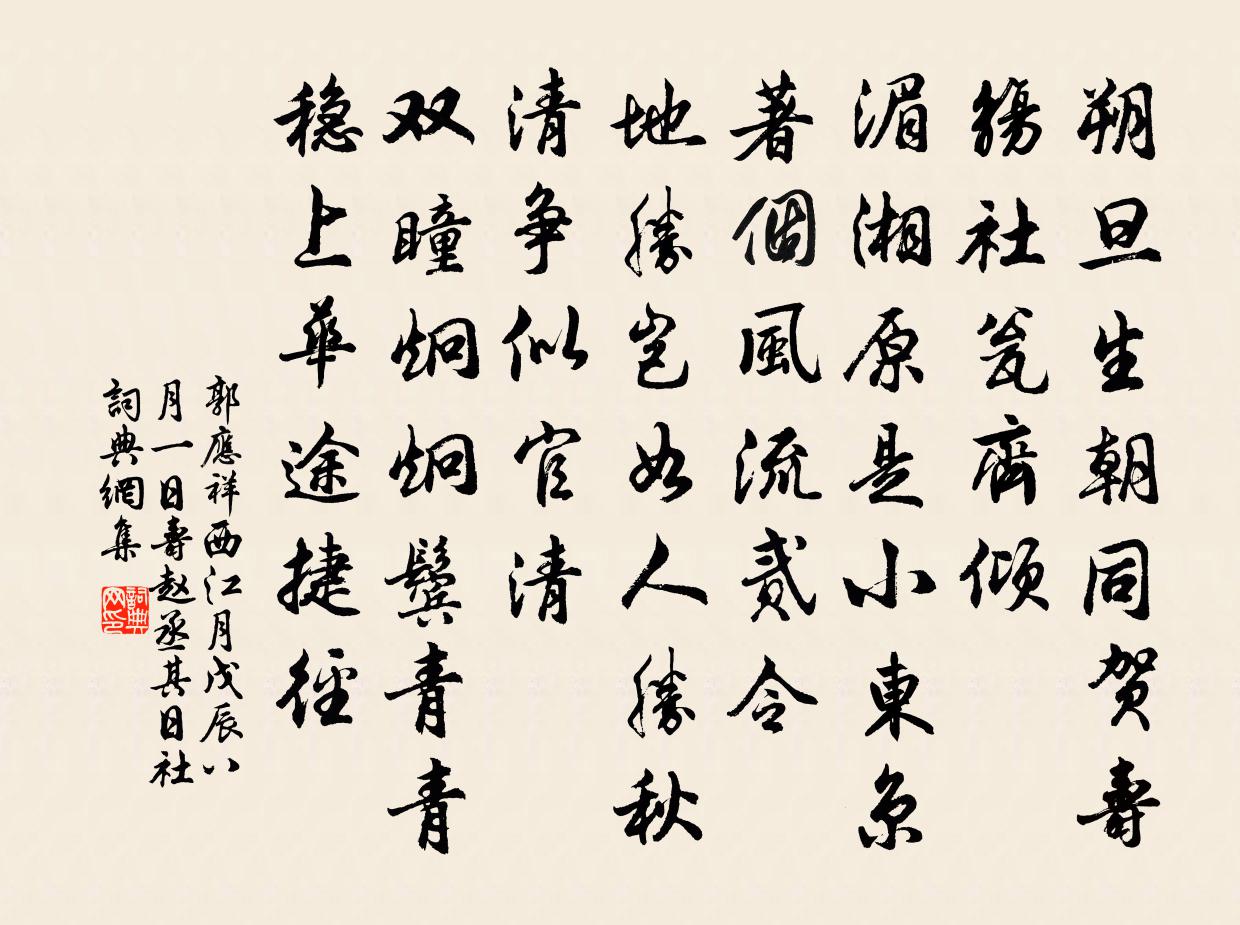 朔旦生朝同贺壽
觞社瓮齊傾
湄湘原是小東京
著個風流貳令
地勝豈如人勝秋
清争似官清
双瞳炯炯鬓青青
稳上華途捷徑
郭應祥西江月戊辰八
月一日壽赵丞其日社
詞典網集
詞典网印